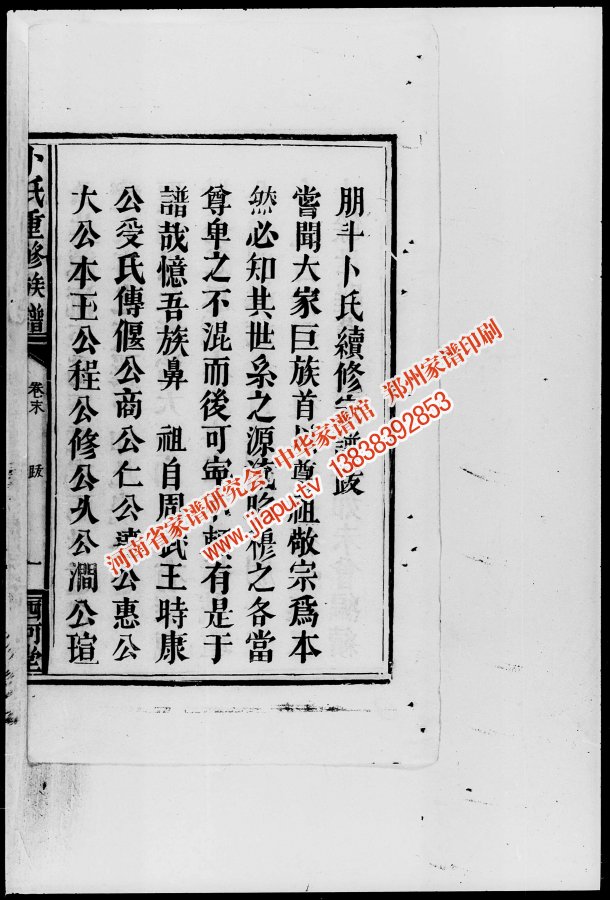 朋斗卜氏續修宗譜跋
嘗聞大家巨族首以尊祖敬宗爲本
然必知其世系之源流昭穆之各當
尊卑之不混而後可寧有是于
譜哉憶吾族鼻 祖自周武王時康
公受氏傳偃公商公仁公公惠公
大公本王公程公修公久公澗公瑄
卜氏重修族譜
卷末
跋
一
西河堂
河南省家谱研究会 中华家谱馆 郑州家谱印刷
www.jiapu.tv 13838392853